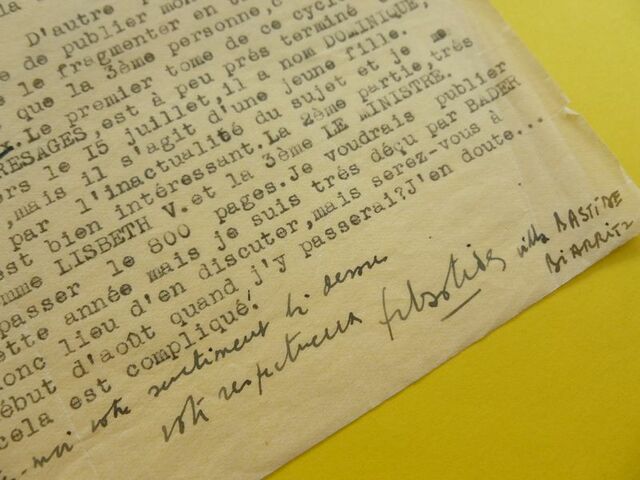 D'autre
de publier mon
e le fragmenter en
que la 3ème personne,
.Le premier tome de ce cycle
RESAGES,est à peu près terminé
ers le 15 juillet,il a nom DOMINIQUE,
,mais il s'agit d'une jeune fille.
par l'inactualité du sujet et je me
est bien intéressant.La 2ème partie,très
mme LISBETH V.et la 3ème LE MINISTRE.
passer le 800 pages.Je voudrais publier
ette année mais je suis très déçu par BADER
onc lieu d'en discuter,mais serez-vous à
ébut d'août quand j'y passerai?J'en doute...
cela est compliqué!
-moi votre sentiment là dessus
votre respectueux
villa BASTIDE
BIARRITZ